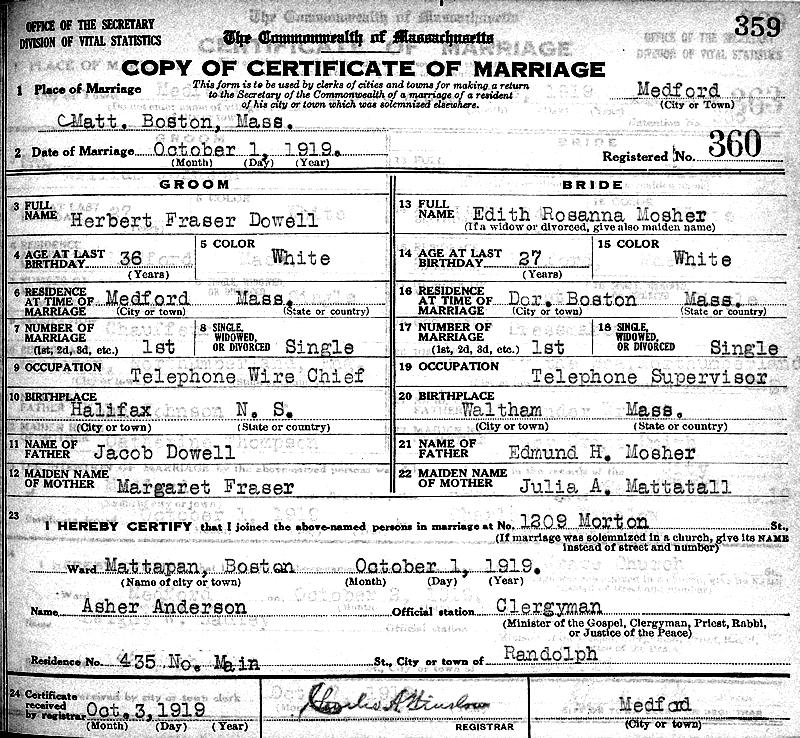 OFFICE OF THE SECRETARY
DIVISION OF VITAL STATISTICS
The Commonwealth of Massachusetts
359
COPY OF CERTIFICATE OF MARRIAGE
1 Place of Marriage
This form is to be used by clerks of cities and towns for making a return
to the Secretary of the Commonwealth of a marriage of a resident
of his city or town which was solemnized elsewhere.
Medford
(City or Town)
Matt. Boston, Mass.
2 Date of Marriage October 1, 1919.
(Month) (Day) (Year)
Registered No. 360
GROOM BRIDE
3 FULL NAME Herbert Fraser Dowell
13 FULL NAME Edith Rosanna Mosher
(If a widow or divorced, give also maiden name)
4 AGE AT LAST BIRTHDAY 36 (Years)
5 COLOR White
14 AGE AT LAST BIRTHDAY 27 (Years)
15 COLOR White
6 RESIDENCE AT TIME OF MARRIAGE Medford Mass.
(City or town) (State or country)
16 RESIDENCE AT TIME OF MARRIAGE Dor. Boston Mass.
(City or town) (State or country)
7 NUMBER OF MARRIAGE (1st, 2d, 3d, etc.) 1st
8 SINGLE, WIDOWED, OR DIVORCED Single
17 NUMBER OF MARRIAGE (1st, 2d, 3d, etc.) 1st
18 SINGLE, WIDOWED, OR DIVORCED Single
9 OCCUPATION Telephone Wire Chief
19 OCCUPATION Telephone Supervisor
10 BIRTHPLACE Halifax N. S.
(City or town) (State or country)
20 BIRTHPLACE Waltham Mass.
(City or town) (State or country)
11 NAME OF FATHER Jacob Dowell
21 NAME OF FATHER Edmund H. Mosher
12 MAIDEN NAME OF MOTHER Margaret Fraser
22 MAIDEN NAME OF MOTHER Julia A. Mattatall
23
I HEREBY CERTIFY that I joined the above-named persons in marriage at No. 1209 Morton St.,
(If marriage was solemnized in a church, give its NAME
instead of street and number)
Ward Mattapan, Boston October 1, 1919.
(Name of city or town) (Month) (Day) (Year)
Name Asher Anderson Official station Clergyman
(Minister of the Gospel, Clergyman, Priest, Rabbi,
or Justice of the Peace)
Residence No. 435 No. Main St., City or town of Randolph
24 Certificate received by registrar Oct. 3, 1919
(Month) (Day) (Year)
Charles A Winslow
REGISTRAR
Medford
(City or town)